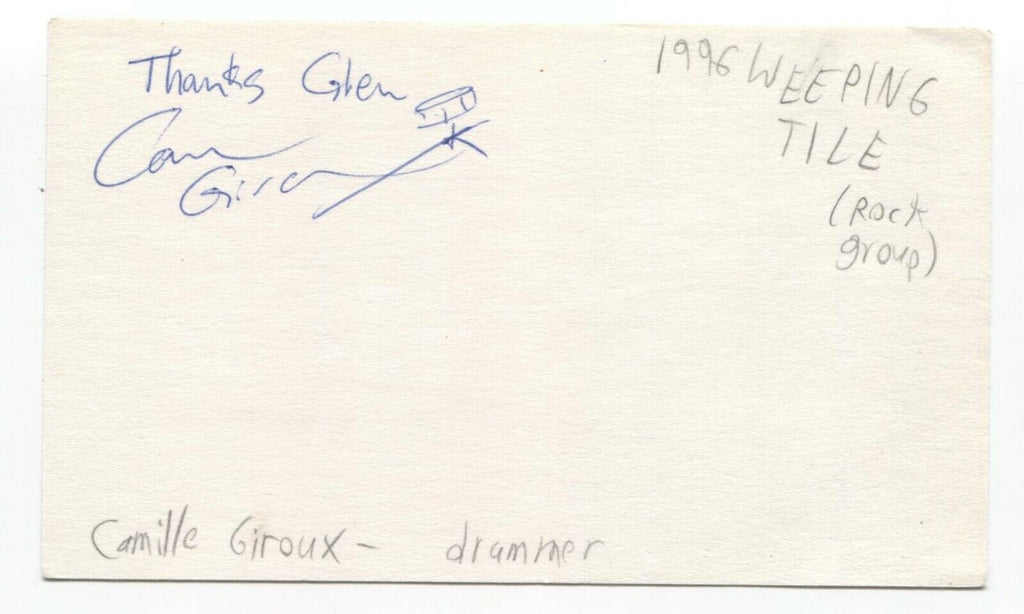 Thanks Glen
Cam
Giroux
1996 WEEPING
TILE
(Rock
group)
Camille Giroux - drummer